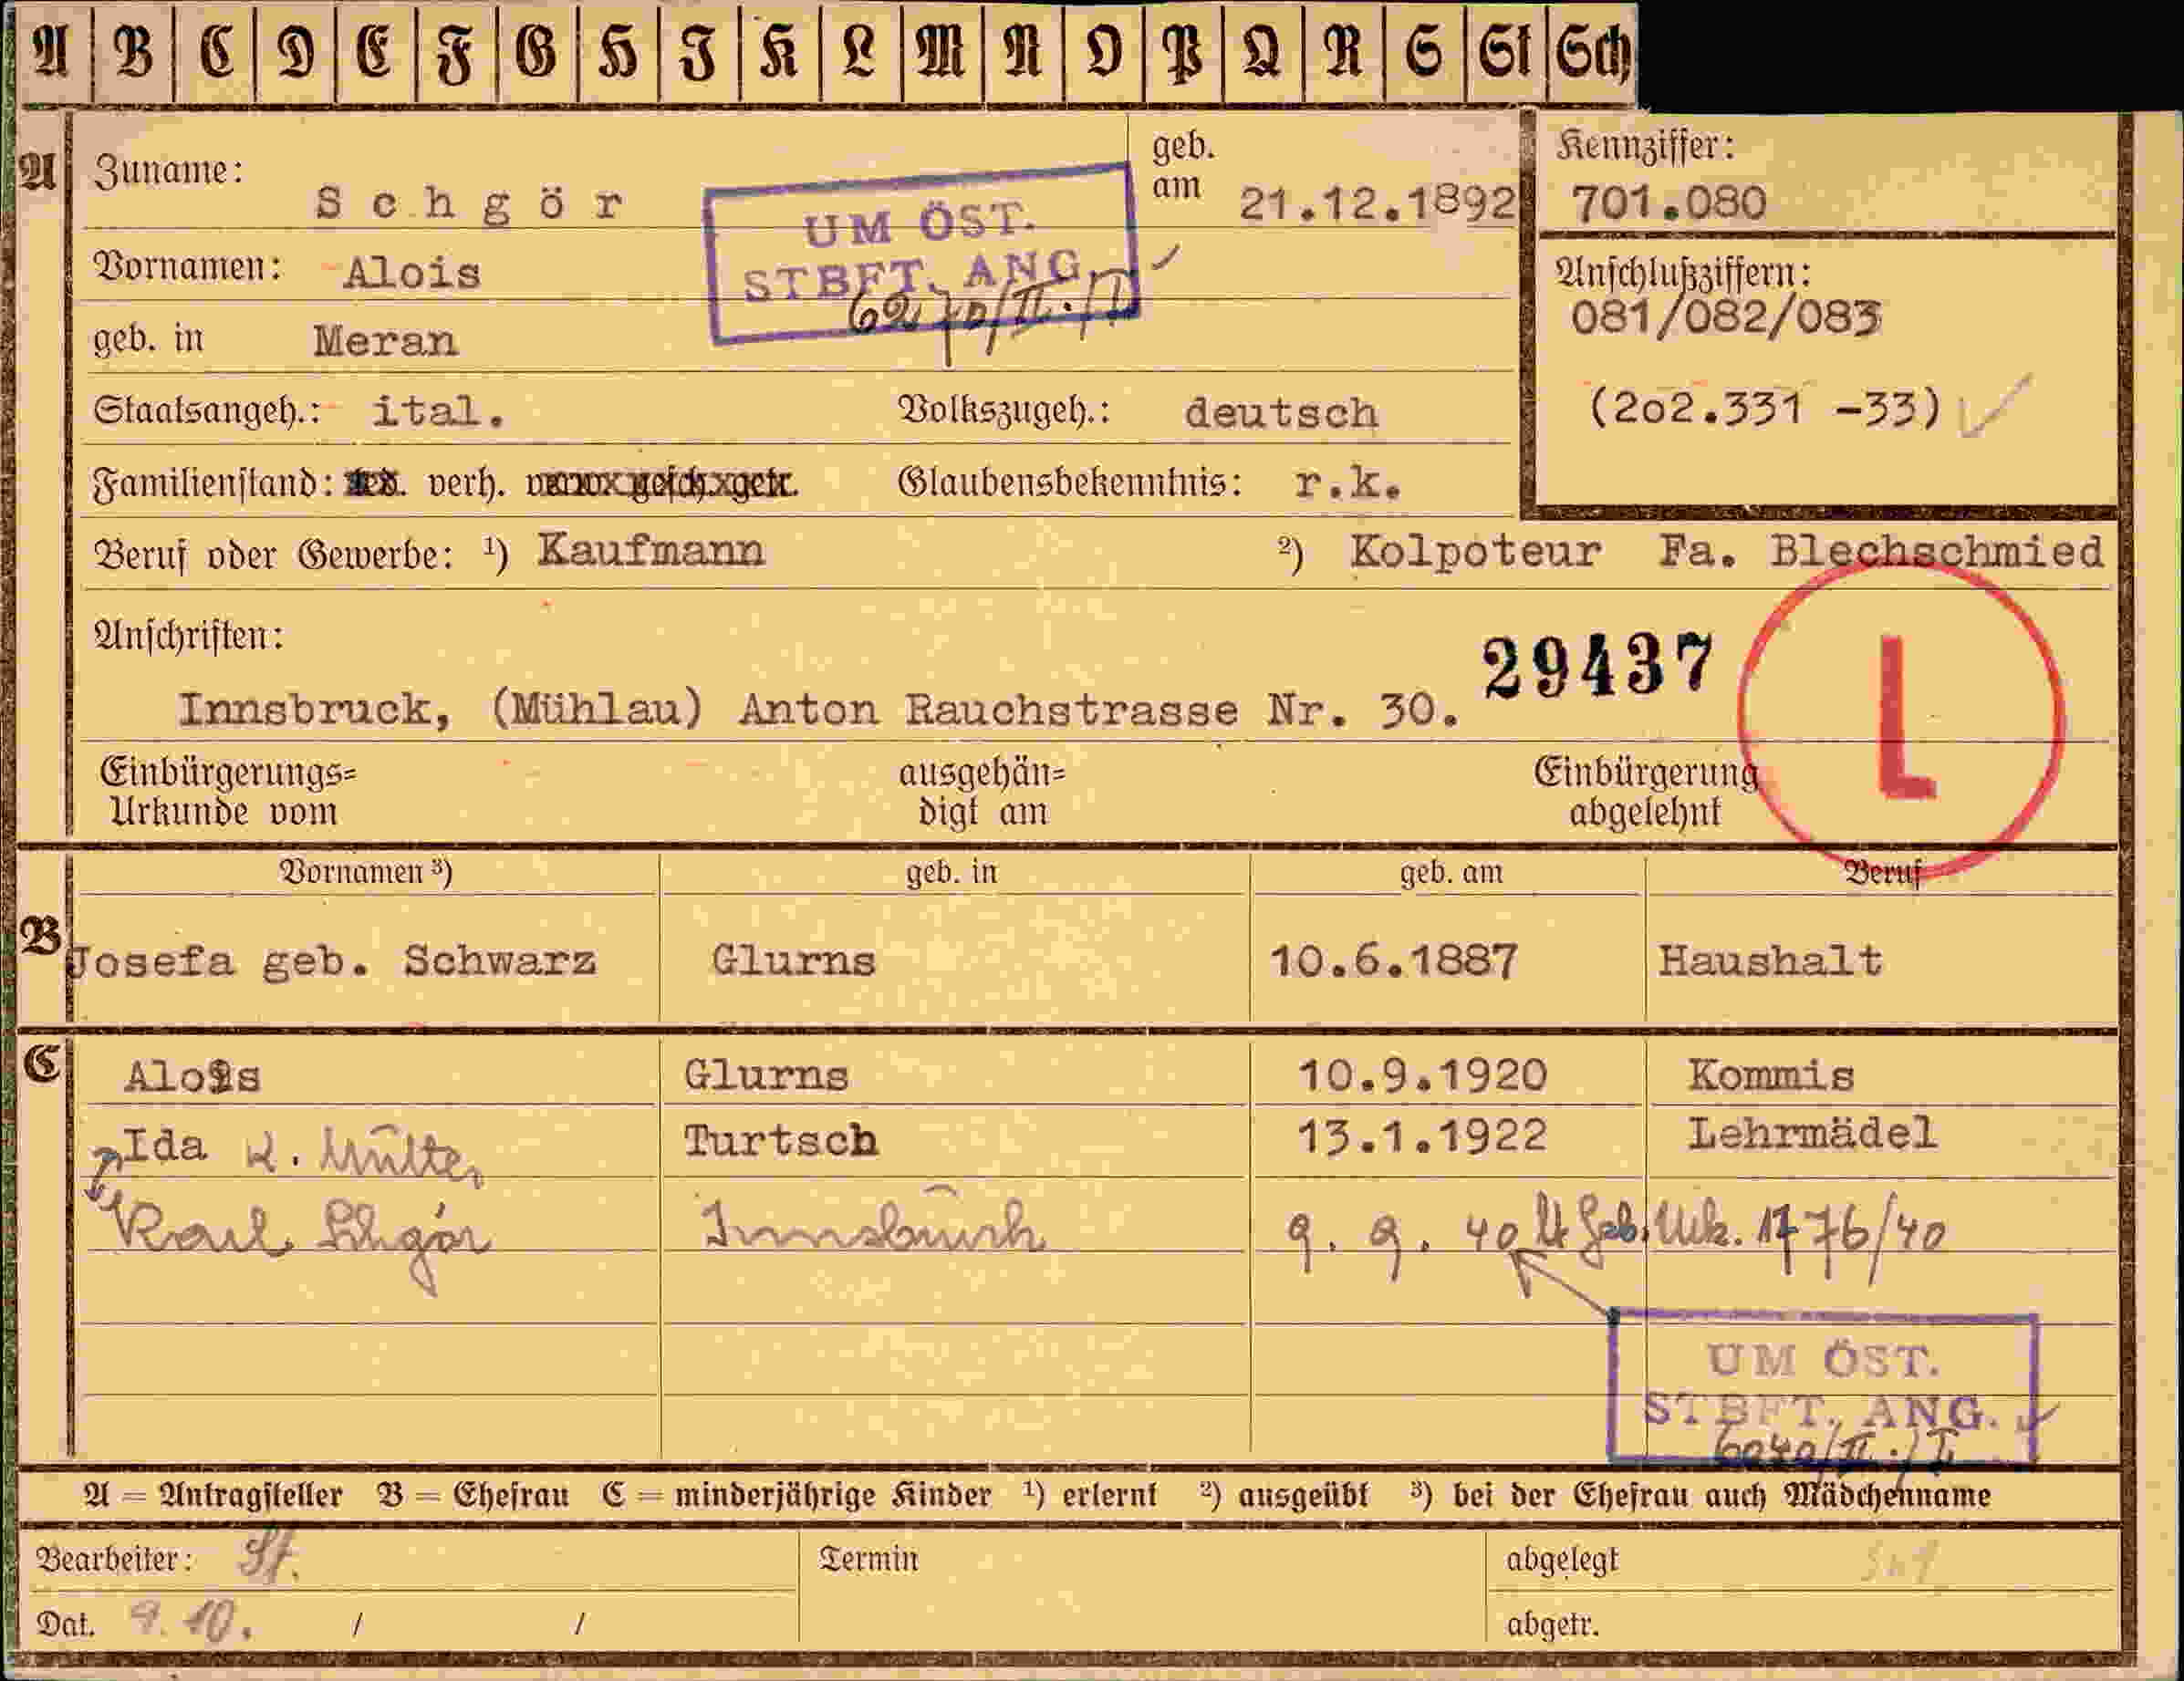 A B C D E F G H I K L M N O P Q R S St Sch
A Zuname: Schgör geb. am 21.12.1892 Kennziffer: 701.080
UM ÖST. STBFT. ANG.
Vornamen: Alois
geb. in Meran
Anschlußziffern: 081/082/083
(2o2.331 -33)
Staatsangeh.: ital. Volkszugeh.: deutsch
Familienstand: verh. Glaubensbekenntnis: r.k.
Beruf oder Gewerbe: ¹) Kaufmann ²) Kolpoteur Fa. Blechschmied
Anschriften:
29437
L
Innsbruck, (Mühlau) Anton Rauchstrasse Nr. 30.
Einbürgerungs= Urkunde vom ausgehän= digt am Einbürgerung abgelehnt
Vornamen ³) geb. in geb. am Beruf
B Josefa geb. Schwarz Glurns 10.6.1887 Haushalt
C Alois Glurns 10.9.1920 Kommis
Ida Turtsch 13.1.1922 Lehrmädel
Karl Schgör Innsbruck 9. 9. 40 lt Geb. Urk. 1776/40
UM ÖST.
STBFT. ANG.
A = Antragsteller B = Ehefrau C = minderjährige Kinder ¹) erlernt ²) ausgeübt ³) bei der Ehefrau auch Mädchenname
Bearbeiter: St. Termin abgelegt
Dat. 9.10. / / abgetr.